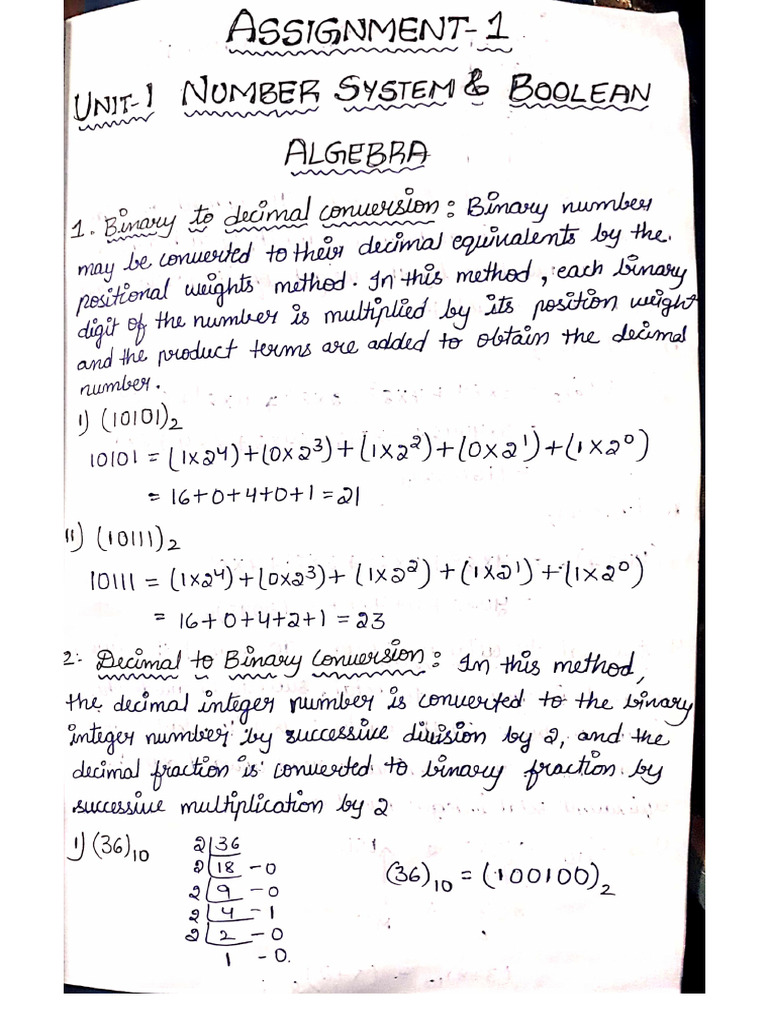 ASSIGNMENT-1
UNIT-1 NUMBER SYSTEM & BOOLEAN
ALGEBRA
1. Binary to decimal conversion: Binary number
may be converted to their decimal equivalents by the
positional weights method. In this method, each binary
digit of the number is multiplied by its position weight
and the product terms are added to obtain the decimal
number.
i) (10101)₂
10101 = (1x2⁴)+(0x2³)+(1x2²)+(0x2¹)+(1x2⁰)
= 16+0+4+0+1=21
ii) (10111)₂
10111 = (1x2⁴)+(0x2³)+(1x2²)+(1x2¹)+(1x2⁰)
= 16+0+4+2+1=23
2. Decimal to Binary Conversion: In this method,
the decimal integer number is converted to the binary
integer number by successive division by 2, and the
decimal fraction is converted to binary fraction by
successive multiplication by 2
i) (36)₁₀ 2|36
2|18 -0 (36)₁₀ = (100100)₂
2|9 -0
2|4 -1
2|2 -0
1 -0.